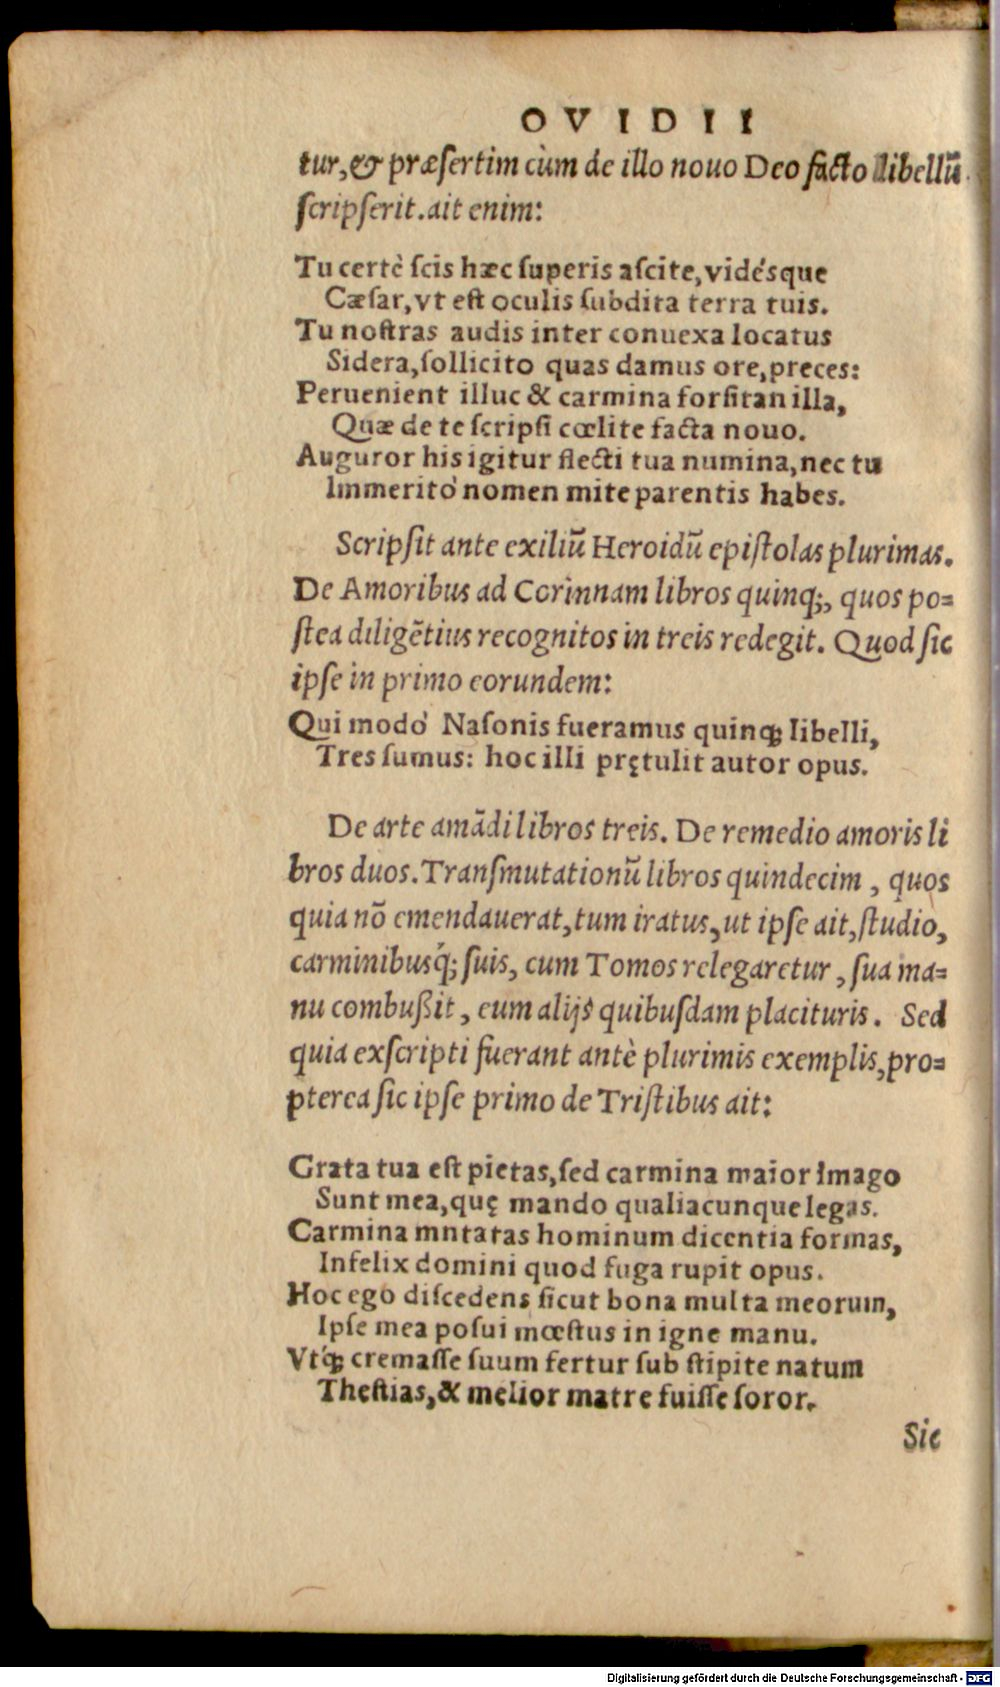 OVIDII
tur, & præſertim cùm de illo nouo Deo facto libellũ
ſcripſerit. ait enim:
Tu certè ſcis hæc ſuperis aſcite, vidésque
Cæſar, vt eſt oculis ſubdita terra tuis.
Tu noſtras audis inter conuexa locatus
Sidera, ſollicito quas damus ore, preces:
Peruenient illuc & carmina forſitan illa,
Quæ de te ſcripſi cœlite facta nouo.
Auguror his igitur flecti tua numina, nec tu
Immeritò nomen mite parentis habes.
Scripſit ante exiliũ Heroidũ epiſtolas plurimas.
De Amoribus ad Corinnam libros quinq;, quos po=
ſtea diligẽtius recognitos in treis redegit. Quod ſic
ipſe in primo eorundem:
Qui modò Naſonis fueramus quinq; libelli,
Tres ſumus: hoc illi prętulit autor opus.
De arte amãdi libros treis. De remedio amoris li
bros duos. Tranſmutationũ libros quindecim, quos
quia nõ emendauerat, tum iratus, ut ipſe ait, ſtudio,
carminibusq́; ſuis, cum Tomos relegaretur, ſua ma=
nu combußit, cum alijs quibuſdam placituris. Sed
quia exſcripti fuerant antè plurimis exemplis, pro=
pterea ſic ipſe primo de Triſtibus ait:
Grata tua eſt pietas, ſed carmina maior imago
Sunt mea, quę mando qualiacunque legas.
Carmina mntatas hominum dicentia formas,
Infelix domini quod fuga rupit opus.
Hoc ego diſcedens ſicut bona multa meorum,
Ipſe mea poſui mœſtus in igne manu.
Vtq́; cremaſſe ſuum fertur ſub ſtipite natum
Theſtias, & melior matre fuiſſe ſoror.
Sic
Digitalisierung gefördert durch die Deutsche Forschungsgemeinschaft - DFG